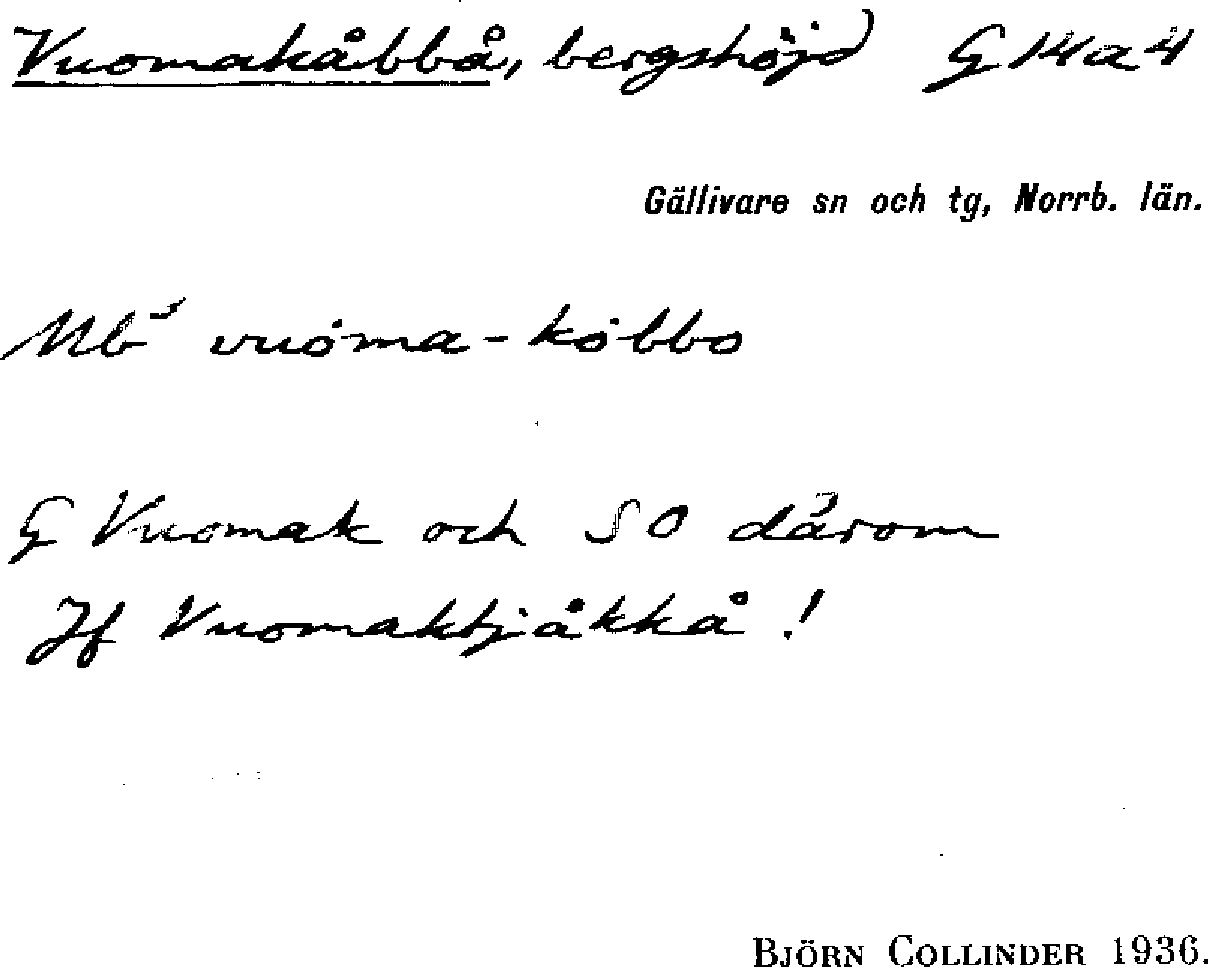 Vuomakåbbå, bergshöjd G 14a4
Gällivare sn och tg, Norrb. län.
vuoma-kobbo
G Vuomak och SO därom
Jf Vuomaktjåkkå !
BJÖRN COLLINDER 1936.